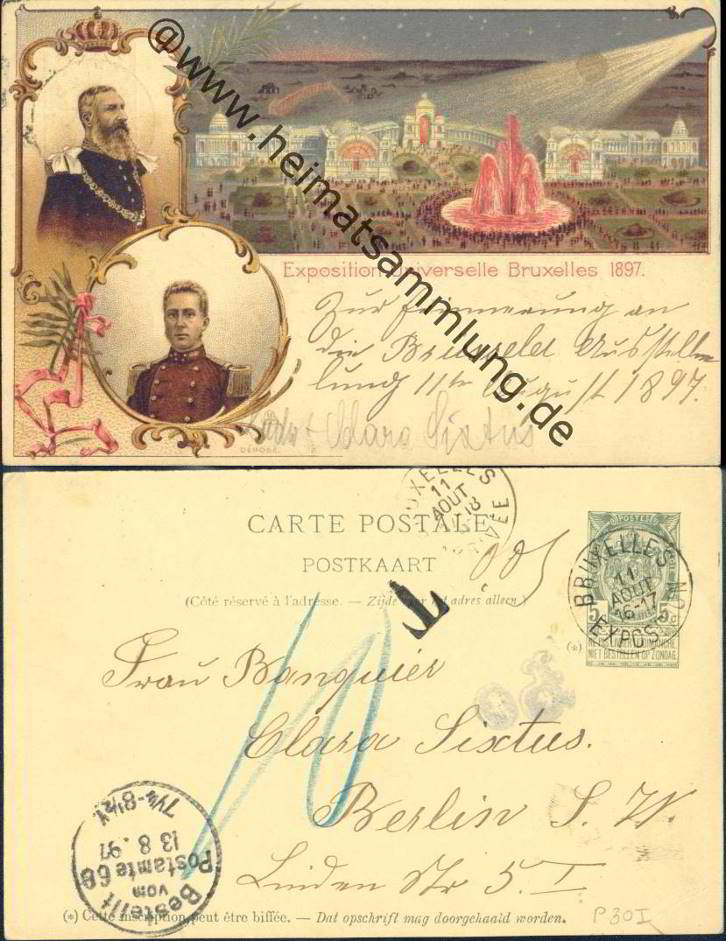 @www.heimatsammlung.de
Exposition Universelle Bruxelles 1897.
Zur Erinnerung an
die Brüsseler Ausstel
lung 11te August 1897.
Clara Sixtus
DÉPOSÉ.
BRUXELLES
11
AOUT
CARTE POSTALE
POSTKAART
(Côté réservé à l'adresse. — Zijde voor het adres alleen.)
T
10
BRUXELLES
11
AOUT
16-17
EXPOSITION
5 5
NE PAS LIVRER LE DIMANCHE
NIET BESTELLEN OP ZONDAG
(*)
Frau Banquier
Clara Sixtus.
Berlin S. W.
Linden Str 5. I.
Bestellt
vom
Postamte 68
13 8. 97
7¼-8½V.
(*) Cette inscription peut être biffée. — Dat opschrift mag doorgehaald worden.
P30I